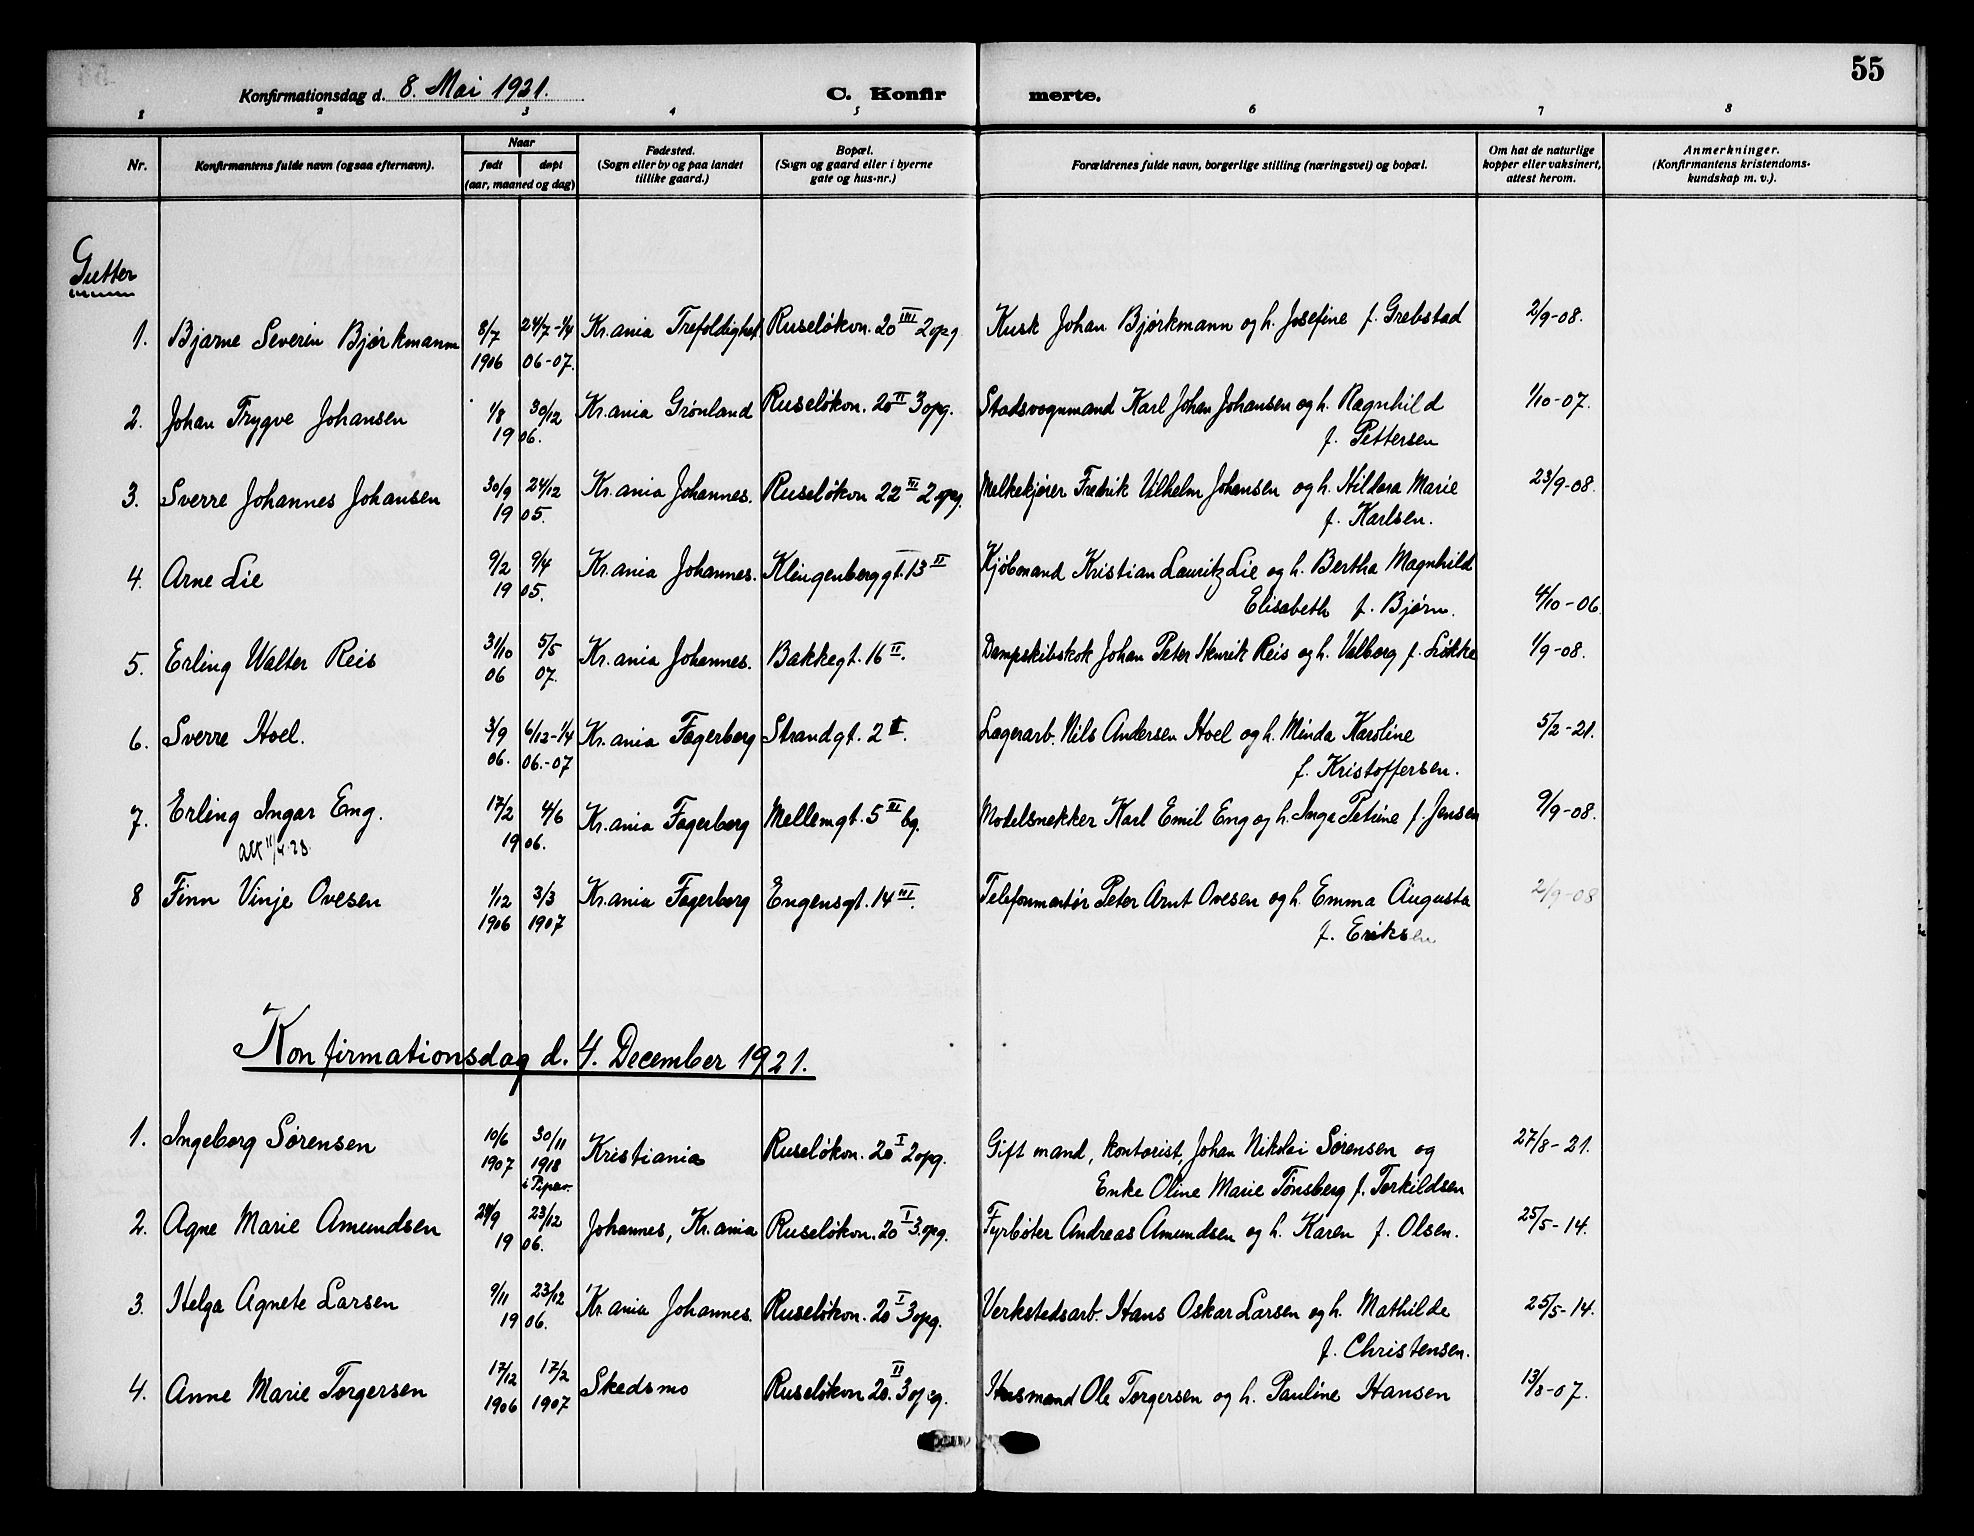 55
Konfirmationsdag d. 8. Mai 1921. C. Konfirmerte.
1 2 3 4 5 6 7 8
Nr. Konfirmantens fulde navn (ogsaa efternavn). Naar født døpt (aar, maaned og dag) Fødested. (Sogn eller by og paa landet tillike gaard.) Bopæl. (Sogn og gaard eller i byerne gate og hus-nr.) Forældrenes fulde navn, borgerlige stilling (næringsvei) og bopæl. Om hat de naturlige kopper eller vaksinert, attest herom. Anmerkninger. (Konfirmantens kristendoms-kundskap m. v.).
Gutter
1. Bjarne Severin Bjørkmann 8/7 24/7-1/4 Kr.ania Trefoldighet. Ruseløkvn. 20 III 2 opg. Kusk Johan Bjørkmann og h. Josefine f. Grebstad 2/9-08.
1906 06-07.
2. Johan Trygve Johansen 1/8 30/12 Kr.ania Grønland Ruseløkvn. 20 II 3 opg. Stadsvognmand Karl Johan Johansen og h. Ragnhild 1/10-07.
1906. f. Pettersen
3. Sverre Johannes Johansen 30/9 24/12 Kr.ania Johannes. Ruseløkvn 22 III 2 opg. Melkekjører Fredrik Vilhelm Johansen og h. Hildora Marie 23/9-08.
1905. f. Karlsen.
4. Arne Lie 9/2 9/4 Kr.ania Johannes. Klingenberggt. 13 II Kjøbmand Kristian Lauritz Lie og h. Bertha Magnhild
1905. Elisabeth f. Bjørn. 4/10-06.
5. Erling Walter Reis 31/10 5/5 Kr.ania Johannes. Bakkegt. 16 II. Dampskibskok Johan Peter Henrik Reis og h. Valborg f. Løkke 1/9-08.
06 07.
6. Sverre Hoel. 3/9 6/12-1/4 Kr.ania Fagerborg Strandgt. 2 I. Lagerarb. Nils Andersen Hoel og h. Minda Karoline 5/2-21.
06. 06.-07 f. Kristoffersen.
7. Erling Ingar Eng. 17/2 4/6 Kr.ania Fagerborg Mellemgt. 5 III bg. Modelsnekker Karl Emil Eng og h. Inga Petrine f. Jensen 9/9-08.
att 11/4-23. 1906.
8 Finn Vinje Ovesen 1/12 3/3 Kr.ania Fagerborg Engensgt. 14 III. Telefonmontør Peter Arnt Ovesen og h. Emma Augusta 2/9-08
1906 1907 f. Eriksen
Konfirmationsdag d. 4. December 1921.
1. Ingeborg Sørensen 10/6 30/11 Kristiania Ruseløkvn. 20 I 2 opg. Gift mand, kontorist, Johan Nikolai Sørensen og 27/8-21.
1907 1918 i Piperv. Enke Oline Marie Tønsberg f. Torkildsen
2. Agne Marie Amundsen 29/9 23/12 Johannes, Kr.ania Ruseløkvn. 20 I 3. opg. Fyrbøter Andreas Amundsen og h. Karen f. Olsen. 25/5-14.
1906.
3. Helga Agnete Larsen 9/11 23/12 Kr.ania Johannes. Ruseløkvn. 20 I 3 opg. Verkstedsarb. Hans Oskar Larsen og h. Mathilde 25/5-14.
1906. f. Christensen.
4. Anne Marie Torgersen 17/12 17/2 Skedsmo Ruseløkvn 20. II 3 opg. Husmand Ole Torgersen og h. Pauline Hansen 13/8-07.
1906 1907